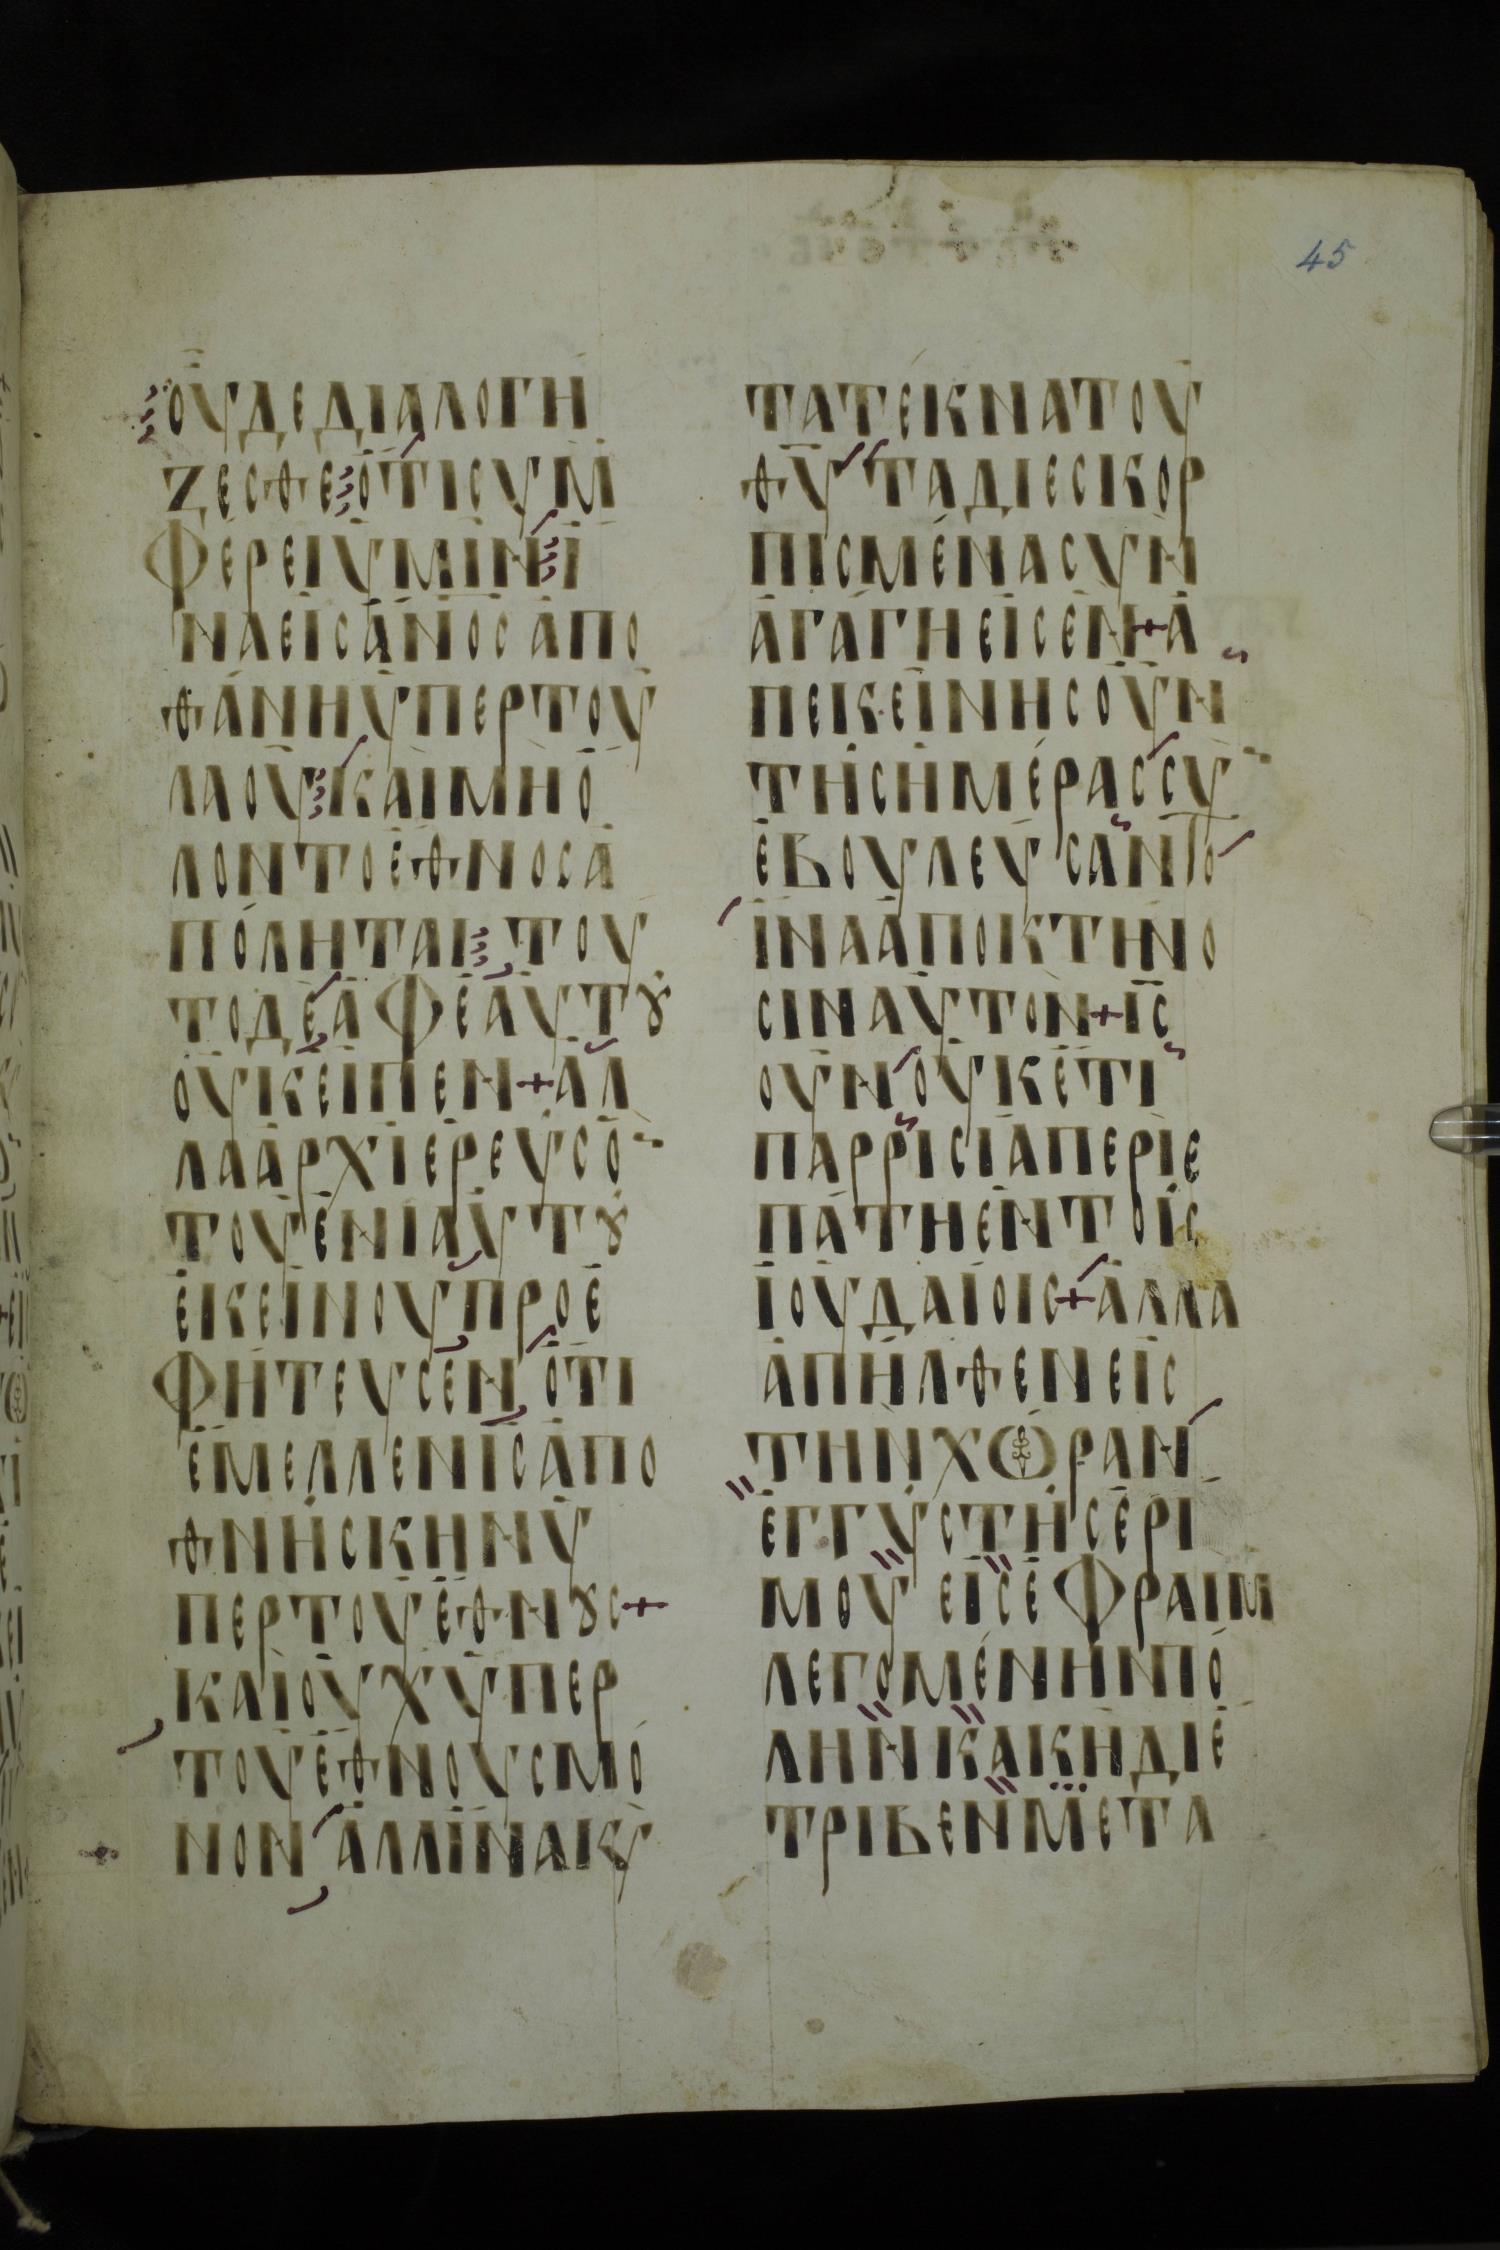 45
ΟΥΔΕΔΙΑΛΟΓΗ
ΖΕΣΘΕΟΤΙΣΥΜ
ΦΕΡΕΙΥΜΙΝΙ
ΝΑΕΙΣΑΝΟΣΑΠΟ
ΘΑΝΗΥΠΕΡΤΟΥ
ΛΑΟΥΚΑΙΜΗΟ
ΛΟΝΤΟΕΘΝΟΣΑ
ΠΟΛΗΤΑΙΤΟΥ
ΤΟΔΕΑΦΕΑΥΤȣ
ΟΥΚΕΙΠΕΝ+ΑΛ
ΛΑΑΡΧΙΕΡΕΥΣΟ
ΤΟΥΕΝΙΑΥΤȣ
ΕΚΕΙΝΟΥΠΡΟΕ
ΦΗΤΕΥΣΕΝΟΤΙ
ΕΜΕΛΛΕΝΙΣΑΠΟ
ΘΝΗΣΚΗΝΥ
ΠΕΡΤΟΥΕΘΝȣΣ+
ΚΑΙΟΥΧΥΠΕΡ
ΤΟΥΕΘΝΟΥΣΜΟ
ΝΟΝΑΛΛΙΝΑΚΥ
ΤΑΤΕΚΝΑΤΟΥ
ΘΥΤΑΔΙΕΣΚΟΡ
ΠΙΣΜΕΝΑΣΥΝ
ΑΓΑΓΗΕΙΣΕΝ+Α
ΠΕΚΕΙΝΗΣΟΥΝ
ΤΗΣΗΜΕΡΑΣΣΥ
ΕΒΟΥΛΕΥΣΑΝΤΟ
ΙΝΑΑΠΟΚΤΗΝΟ
ΣΙΝΑΥΤΟΝ+ΙΣ
ΟΥΝΟΥΚΕΤΙ
ΠΑΡΡΙΣΙΑΠΕΡΙΕ
ΠΑΤΗΕΝΤΟΙΣ
ΙΟΥΔΑΙΟΙΣ+ΑΛΛΑ
ΑΠΗΛΘΕΝΕΙΣ
ΤΗΝΧΩΡΑΝ
ΕΓΓΥΣΤΗΣΕΡΙ
ΜΟΥΕΙΣΕΦΡΑΙΜ
ΛΕΓΟΜΕΝΗΝΠΟ
ΛΗΝΚΑΚΗΔΙΕ
ΤΡΙΒΕΝΜΕΤΑ